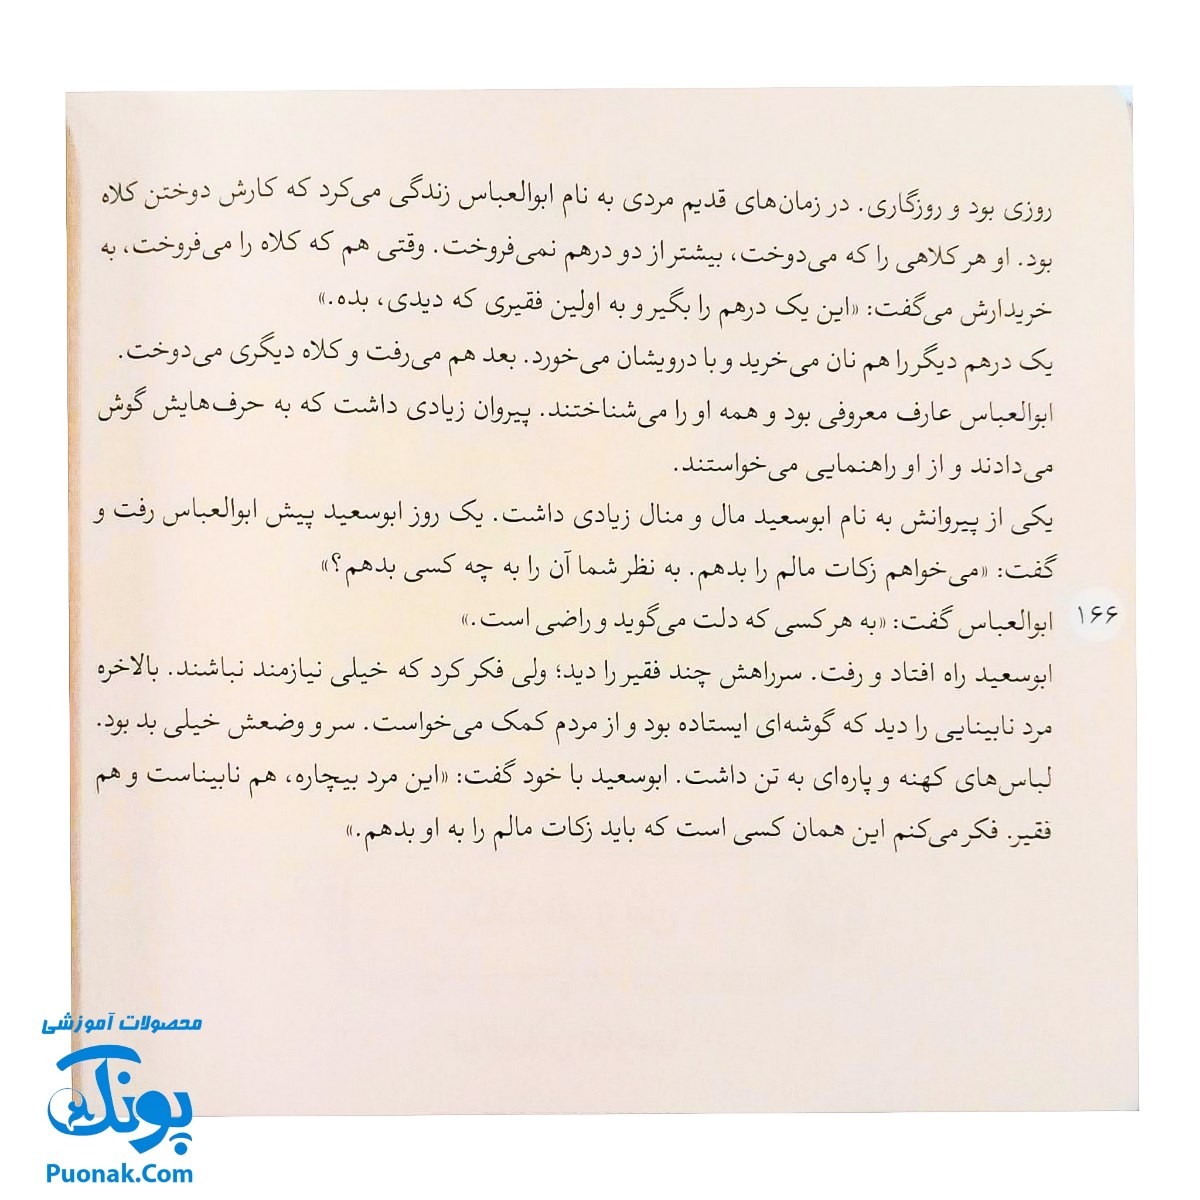 روزی بود و روزگاری. در زمان‌های قدیم مردی به نام ابوالعباس زندگی می‌کرد که کارش دوختن کلاه
بود. او هر کلاهی را که می‌دوخت، بیشتر از دو درهم نمی‌فروخت. وقتی هم که کلاه را می‌فروخت، به
خریدارش می‌گفت: «این یک درهم را بگیر و به اولین فقیری که دیدی، بده.»
یک درهم دیگر را هم نان می‌خرید و با درویشان می‌خورد. بعد هم می‌رفت و کلاه دیگری می‌دوخت.
ابوالعباس عارف معروفی بود و همه او را می‌شناختند. پیروان زیادی داشت که به حرف‌هایش گوش
می‌دادند و از او راهنمایی می‌خواستند.
یکی از پیروانش به نام ابوسعید مال و منال زیادی داشت. یک روز ابوسعید پیش ابوالعباس رفت و
گفت: «می‌خواهم زکات مالم را بدهم. به نظر شما آن را به چه کسی بدهم؟»
ابوالعباس گفت: «به هر کسی که دلت می‌گوید و راضی است.»
۱۶۶
ابوسعید راه افتاد و رفت. سرراهش چند فقیر را دید؛ ولی فکر کرد که خیلی نیازمند نباشند. بالاخره
مرد نابینایی را دید که گوشه‌ای ایستاده بود و از مردم کمک می‌خواست. سر و وضعش خیلی بد بود.
لباس‌های کهنه و پاره‌ای به تن داشت. ابوسعید با خود گفت: «این مرد بیچاره، هم نابیناست و هم
فقیر. فکر می‌کنم این همان کسی است که باید زکات مالم را به او بدهم.»
محصولات آموزشی
پونک
Puonak.Com